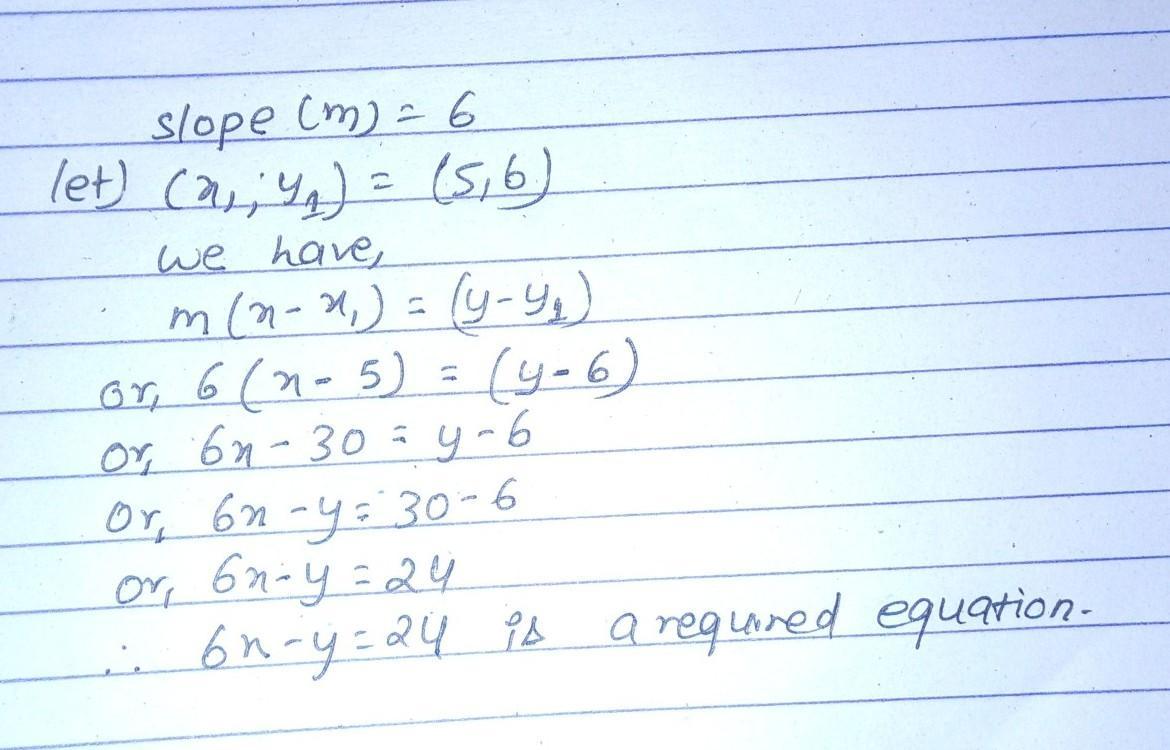 slope (m) = 6
let) (x₁, y₁) = (5,6)
we have,
m(x - x₁) = (y - y₁)
or, 6(x - 5) = (y - 6)
or, 6x - 30 = y - 6
or, 6x - y = 30 - 6
or, 6x - y = 24
∴ 6x - y = 24 is a required equation.